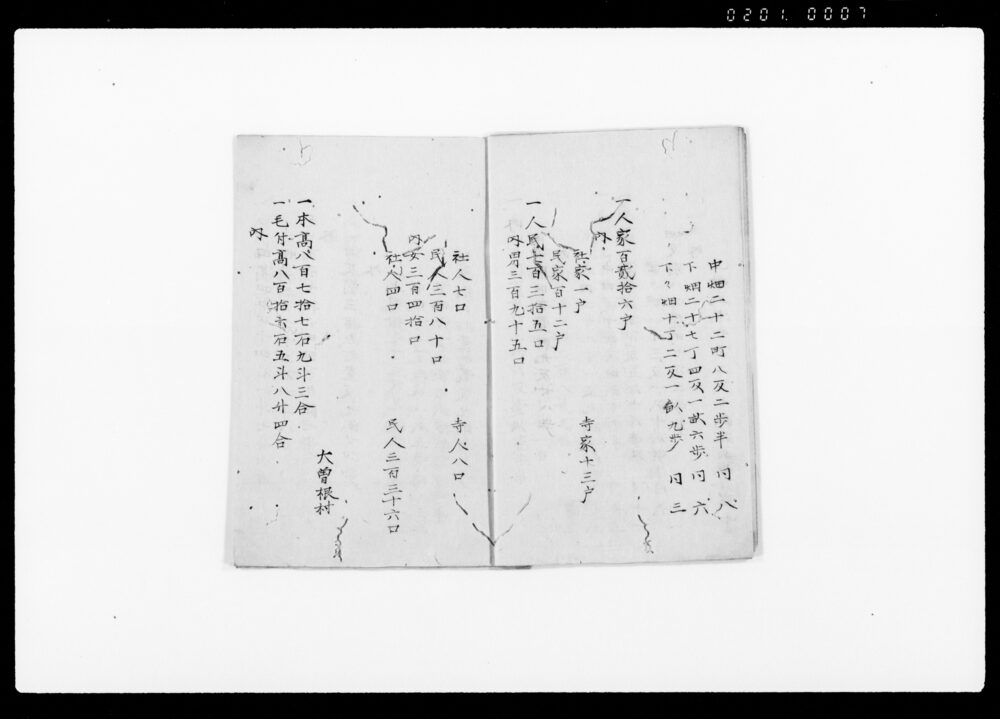 0201.0007
中畑二十二町八反二歩半 同八
下畑二十七丁四反一畝六歩 同六
下々畑十丁二反一畝九歩 同三
一人家百弐拾六戸
内
社家一戸 寺家十三戸
民家百十二戸
一人民七百三拾五口
内男三百九十五口
社人七口 寺人八口
民人三百八十口
内女三百四拾口
社人四口 民人三百三十六口
大曽根村
一本高八百七拾七石九斗三合
一毛付高八百拾 石五斗八升四合
内